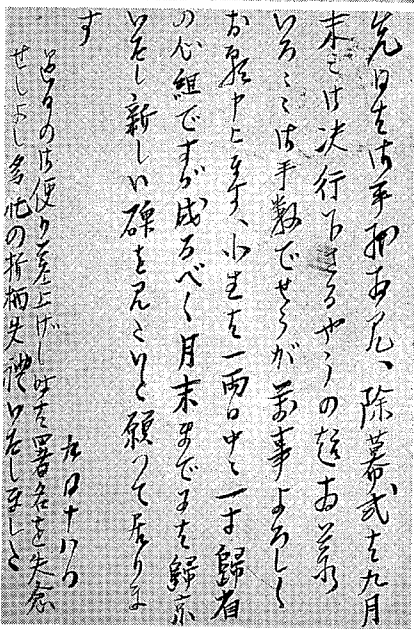 先日は御手紙拝見、除幕式は九月
末には決行下さるやうの趣拝承
いろいろ御手数でせうが萬事よろしく
お願申上ます、小生は一両日中に一寸歸省
の心組ですが成るべく月末までには歸京
いたし新しい碑を見たいと願つて居りま
す
九月十八日
過日の御便り差上げし時は署名を失念
せしよし多忙の折柄失禮いたしました